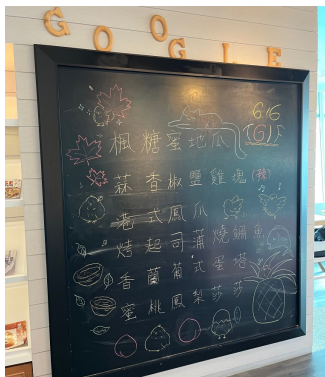 GOOGLE
616
楓糖蜜地瓜
蒜香椒鹽雞塊(辣)
港式鳳爪
烤起司蒲燒鯛魚
香蘭葡式蛋塔
蜜桃鳳梨莎莎